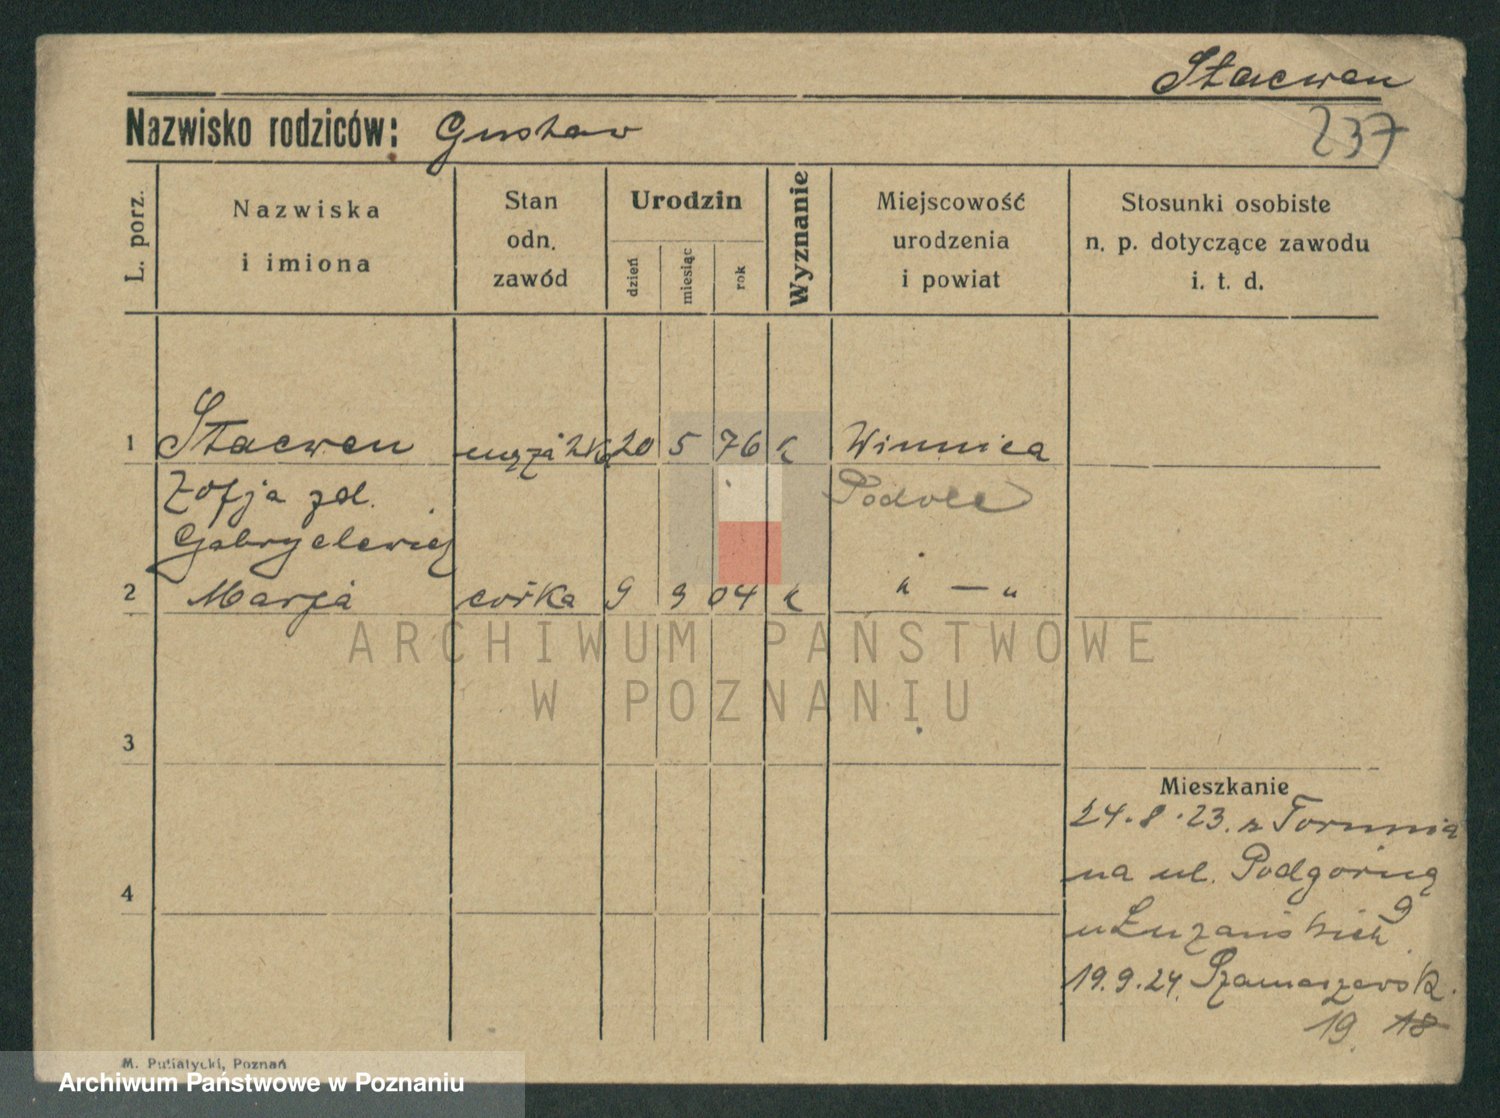 Stacwen
Nazwisko rodziców: Gustaw
237
L. porz.
Nazwiska
i imiona
Stan
odn.
zawód
Urodzin
dzień
miesiąc
rok
Wyznanie
Miejscowość
urodzenia
i powiat
Stosunki osobiste
n. p. dotyczące zawodu
i. t. d.
1 Stacwen 20 5 76 k Winnica
Zofja zd. Podole
Gabryelewicz
2 Marja córka 9 9 04 k " — "
ARCHIWUM PAŃSTWOWE
W POZNANIU
3
Mieszkanie
24.8.23. z Torunia
4
na ul. Podgórną
9
u Łuzańskich
19.9.24. Szamarzewsk.
19. 18
M. Putiatycki, Poznań
Archiwum Państwowe w Poznaniu